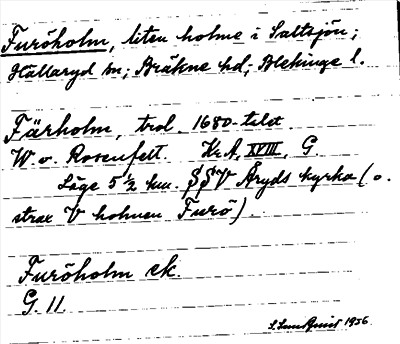 Furöholm, liten holme i Saltsjön;
Hällaryd sn; Bräkne hd; Blekinge l.
Färholm, trol. 1680-talet
W. v. Rosenfelt. KrA, XVIII, G
Läge 5 ½ km. SSV Åryds kyrka (o.
strax V holmen Furö).
Furöholm ek.
G. 11.
S. Lundquist 1956